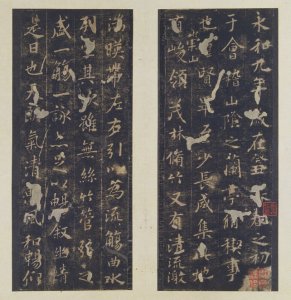 永和九年歲在癸丑春之初
于會稽山陰之蘭亭脩稧事
也賢至少長咸集此地
有崇山峻領茂林脩竹又有清流激
湍暎帶左右引以為流觴曲水
列坐其次雖無絲竹管弦之
盛一觴一詠亦足以暢敘幽情
是日也天氣清惠風和暢仰